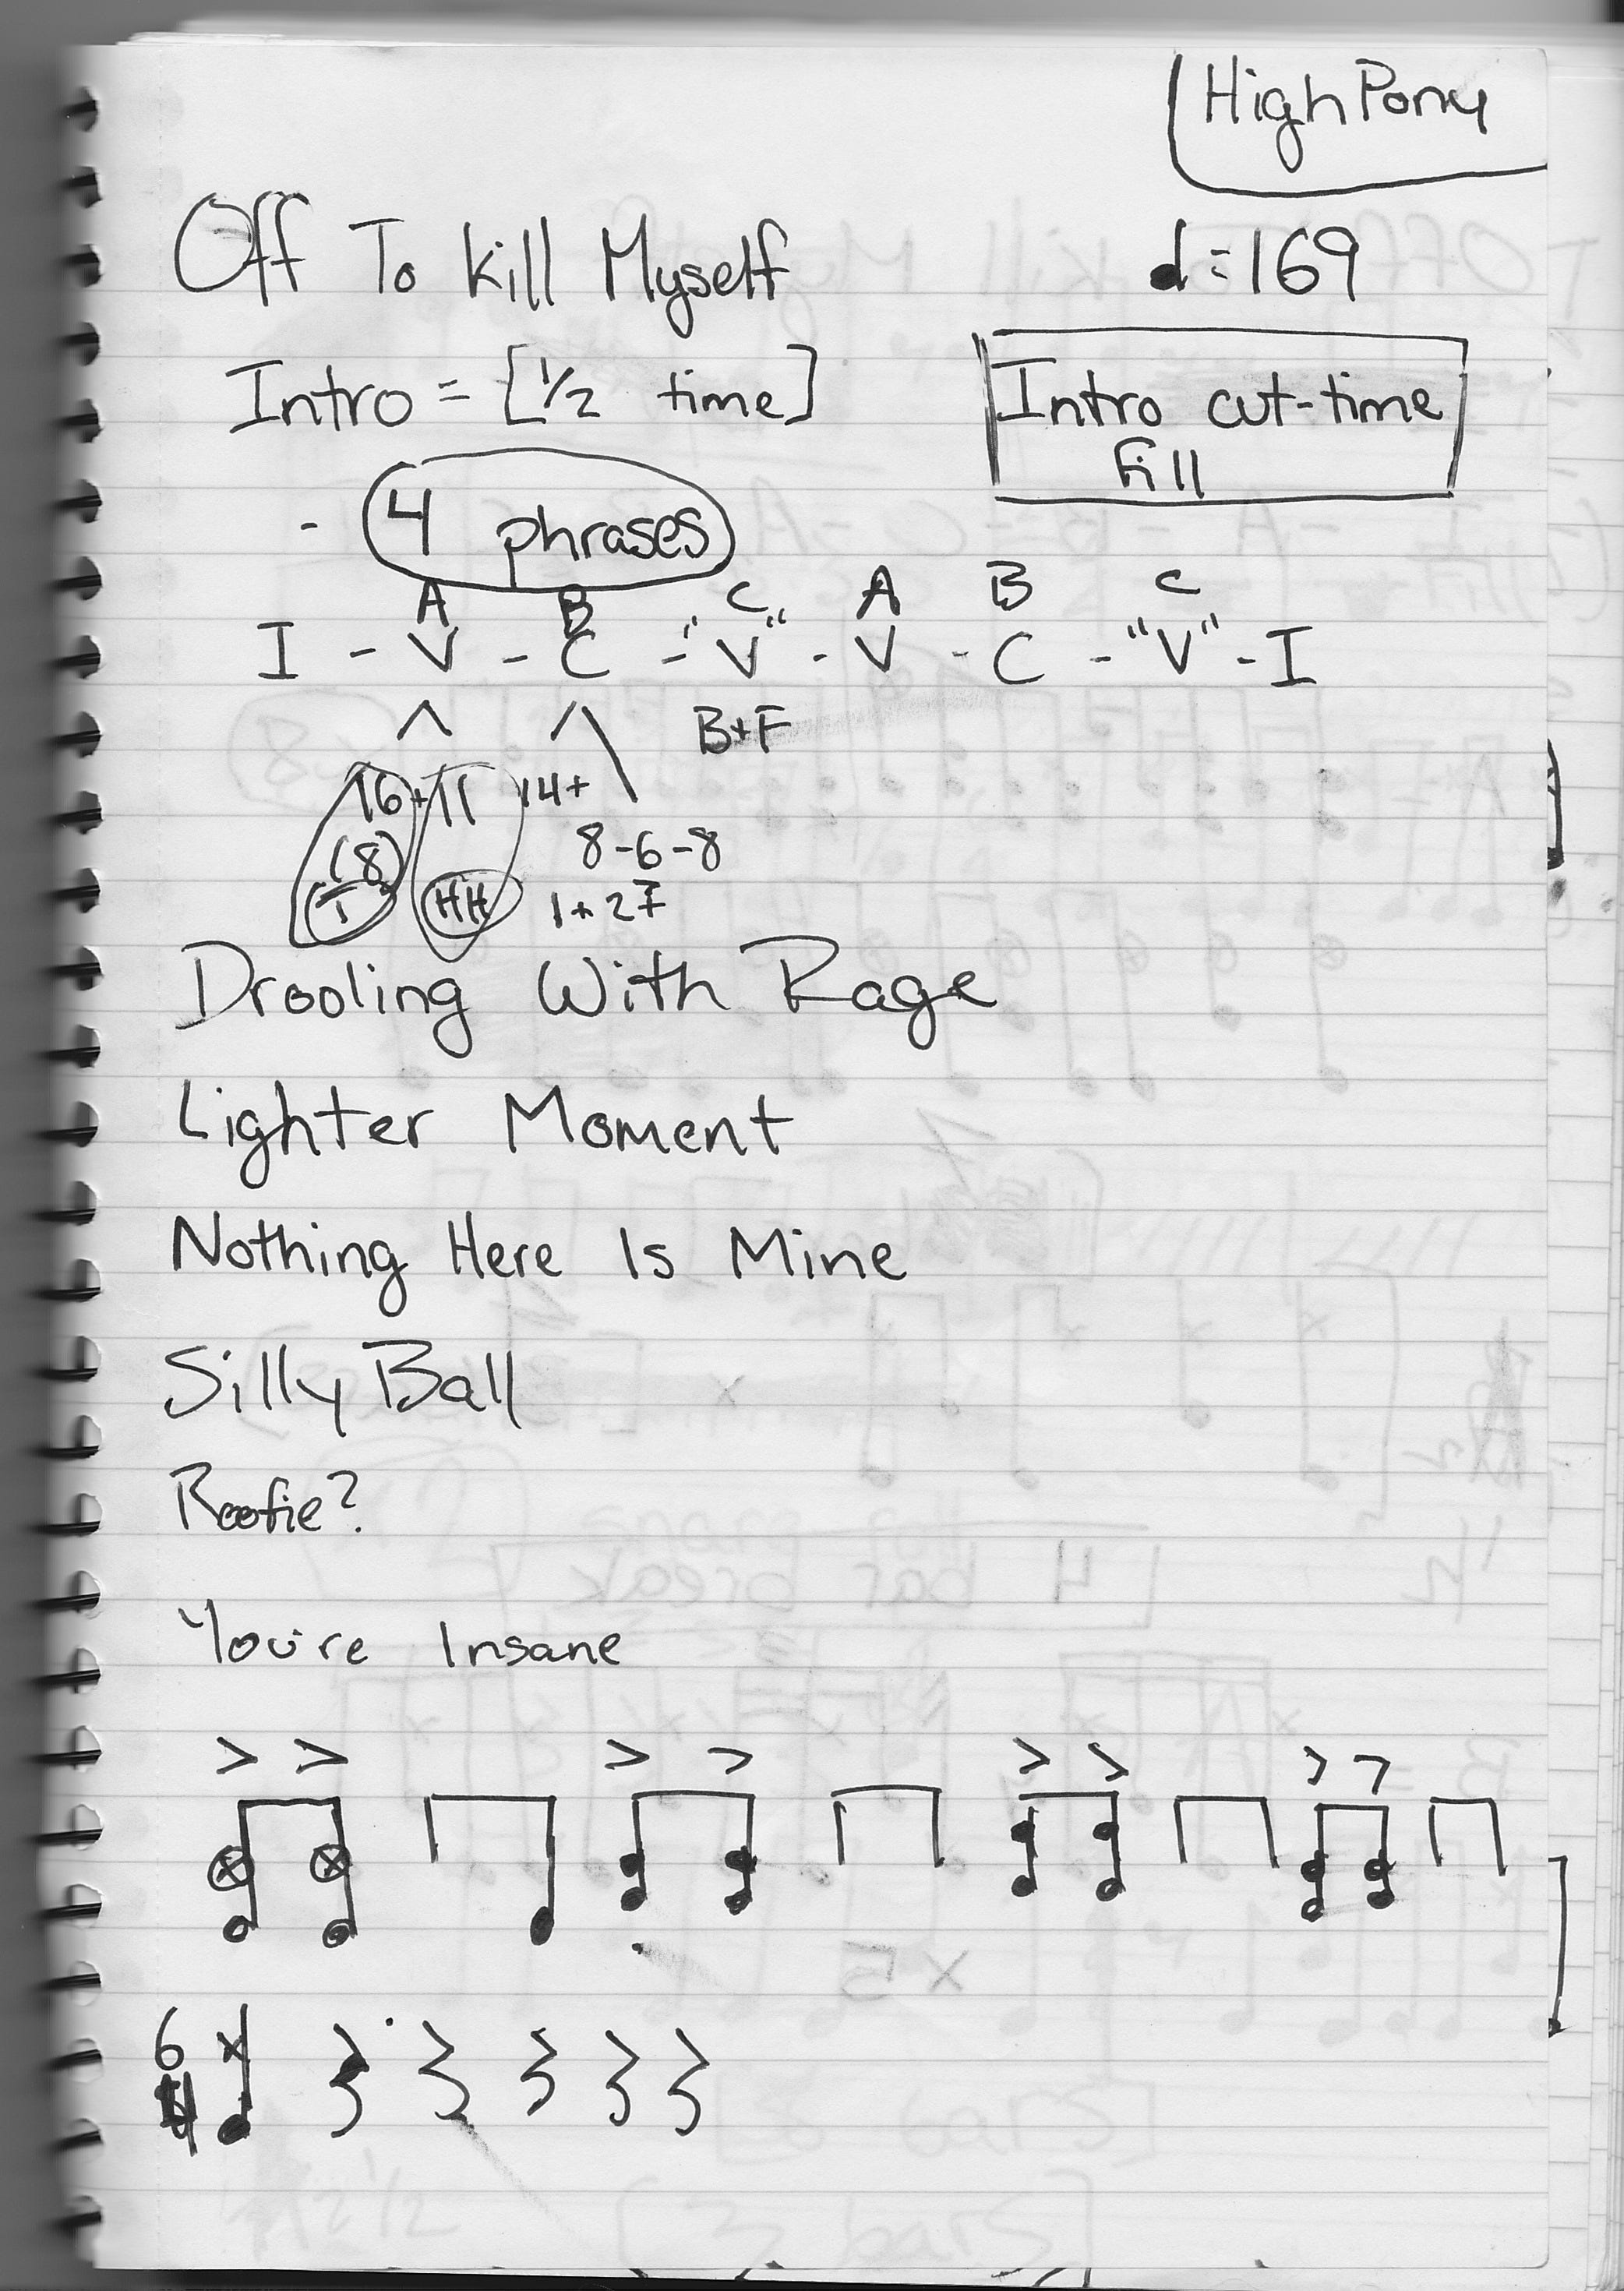 High Pony
Off To Kill Myself ♩=169
Intro = [1/2 time]
Intro cut-time
fill
- 4 phrases
A B C A B C
I - V - C - "V" - V - C - "V" - I
B+F
16+11 14+
(8) 8-6-8
T HH 1+2
Drooling With Rage
Lighter Moment
Nothing Here Is Mine
Silly Ball
Roofie?
You're Insane
> > > > > > > >
6
4